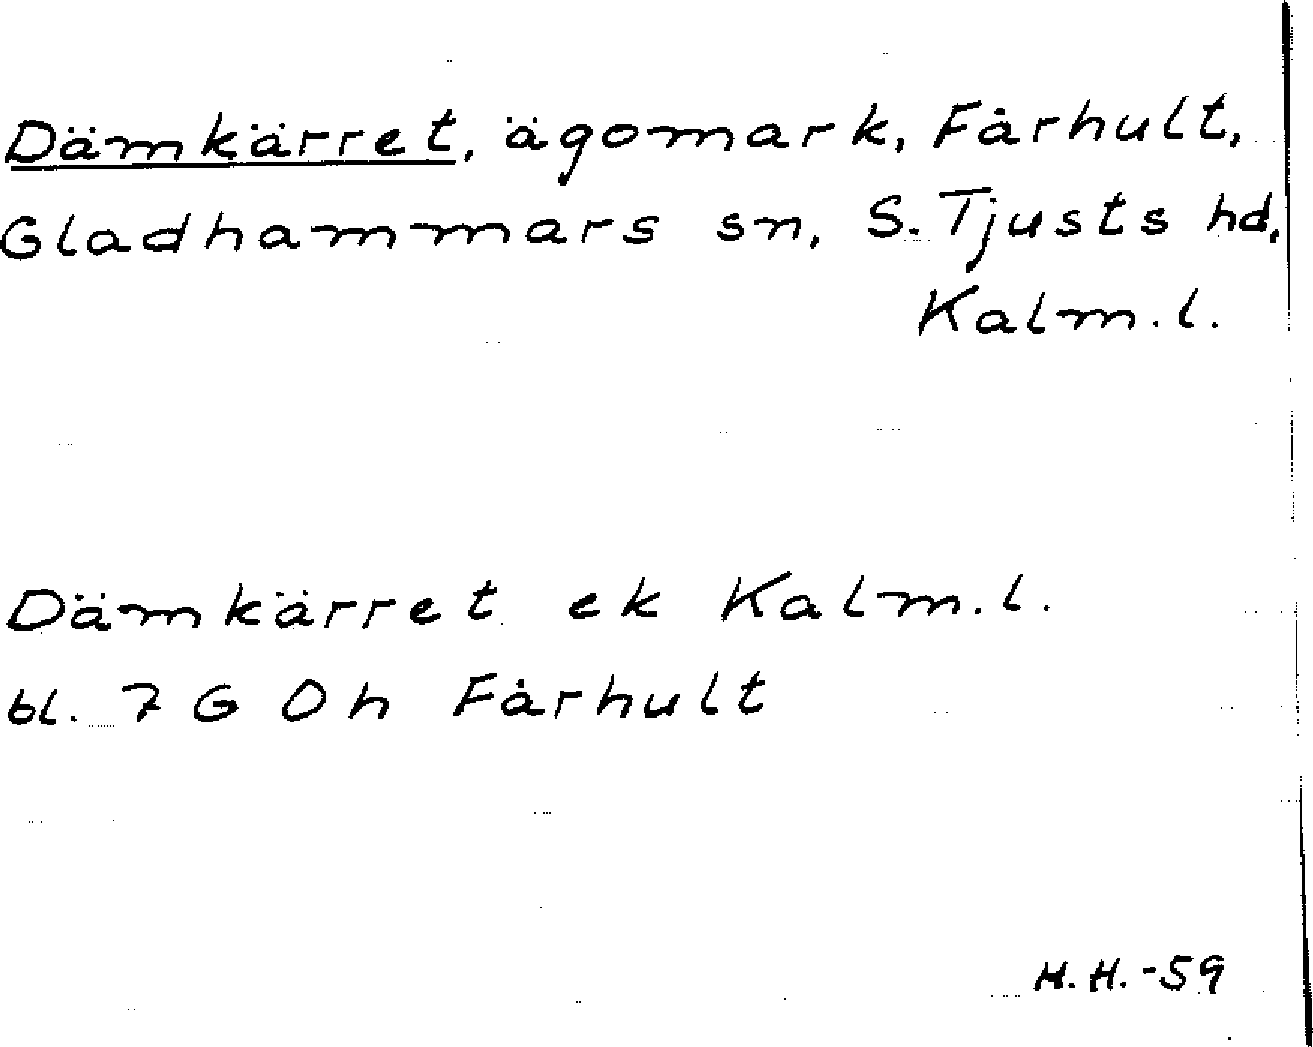 Dämkärret, ägomark, Fårhult,
Gladhammars sn, S. Tjusts hd,
Kalm. l.
Dämkärret ek Kalm. l.
bl. 7 G 0 h Fårhult
H. H. -59